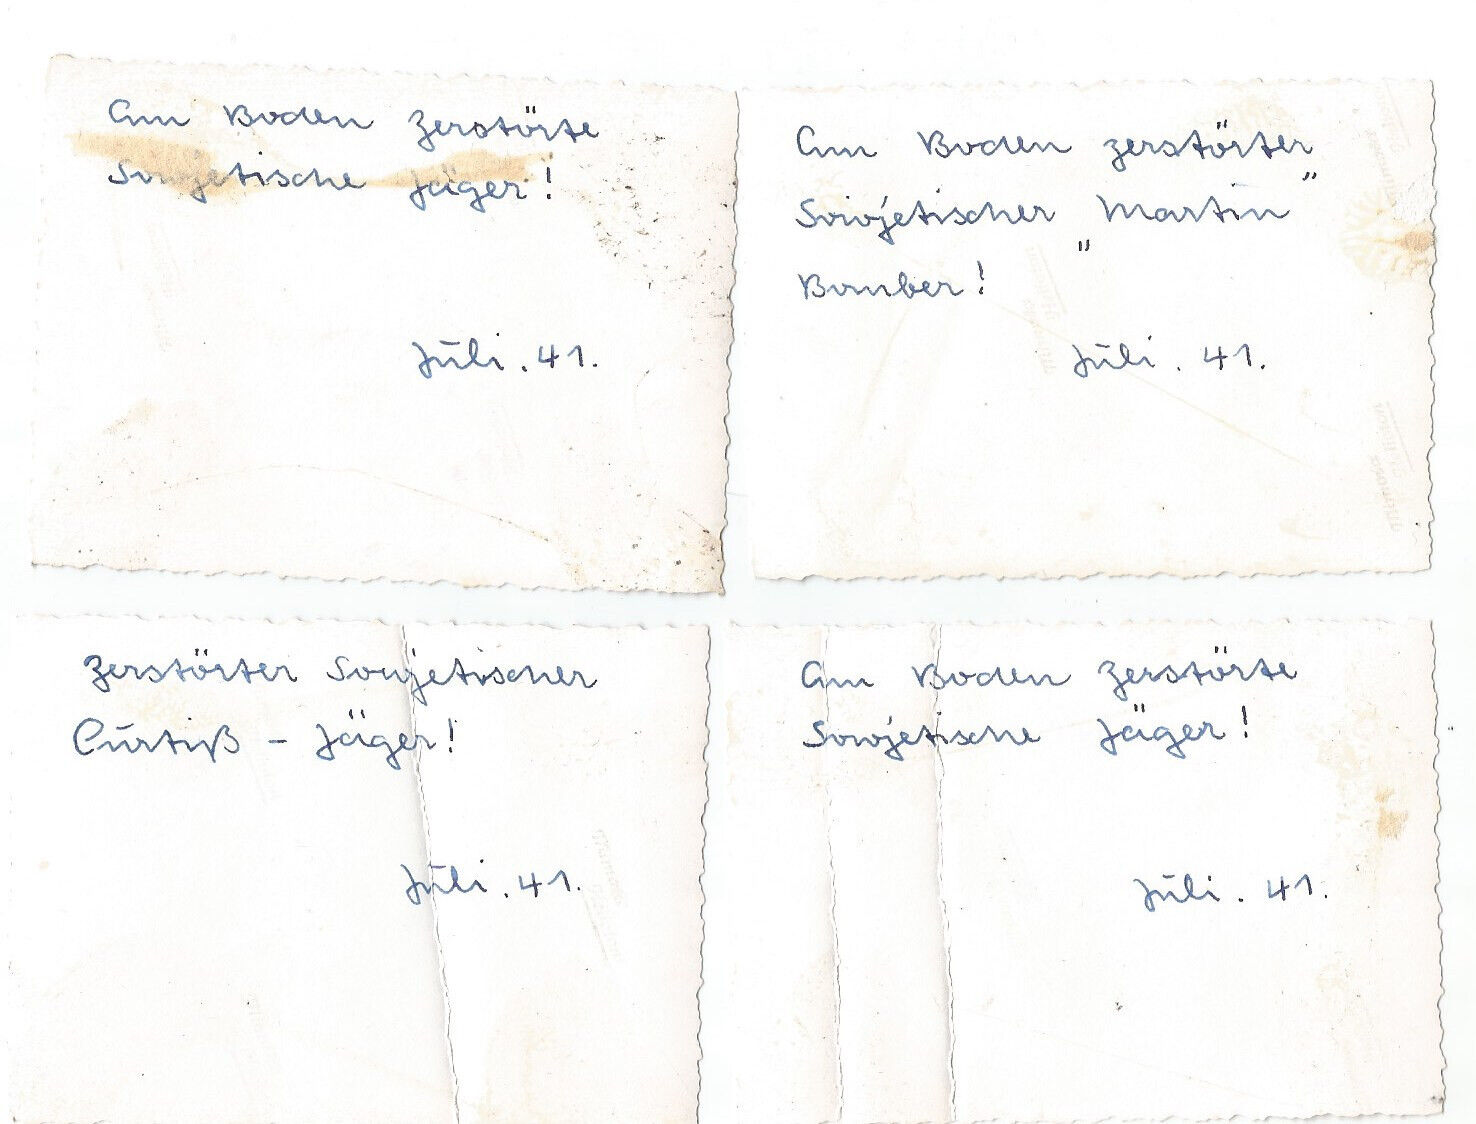 Am Boden Zerstörte
Sowjetische Jäger!
Juli. 41.
Am Boden zerstörter
Sowjetischer „Martin”
Bomber!
Juli. 41.
Zerstörter Sowjetischer
Curtiß - Jäger!
Juli. 41.
Am Boden Zerstörte
Sowjetische Jäger!
Juli. 41.